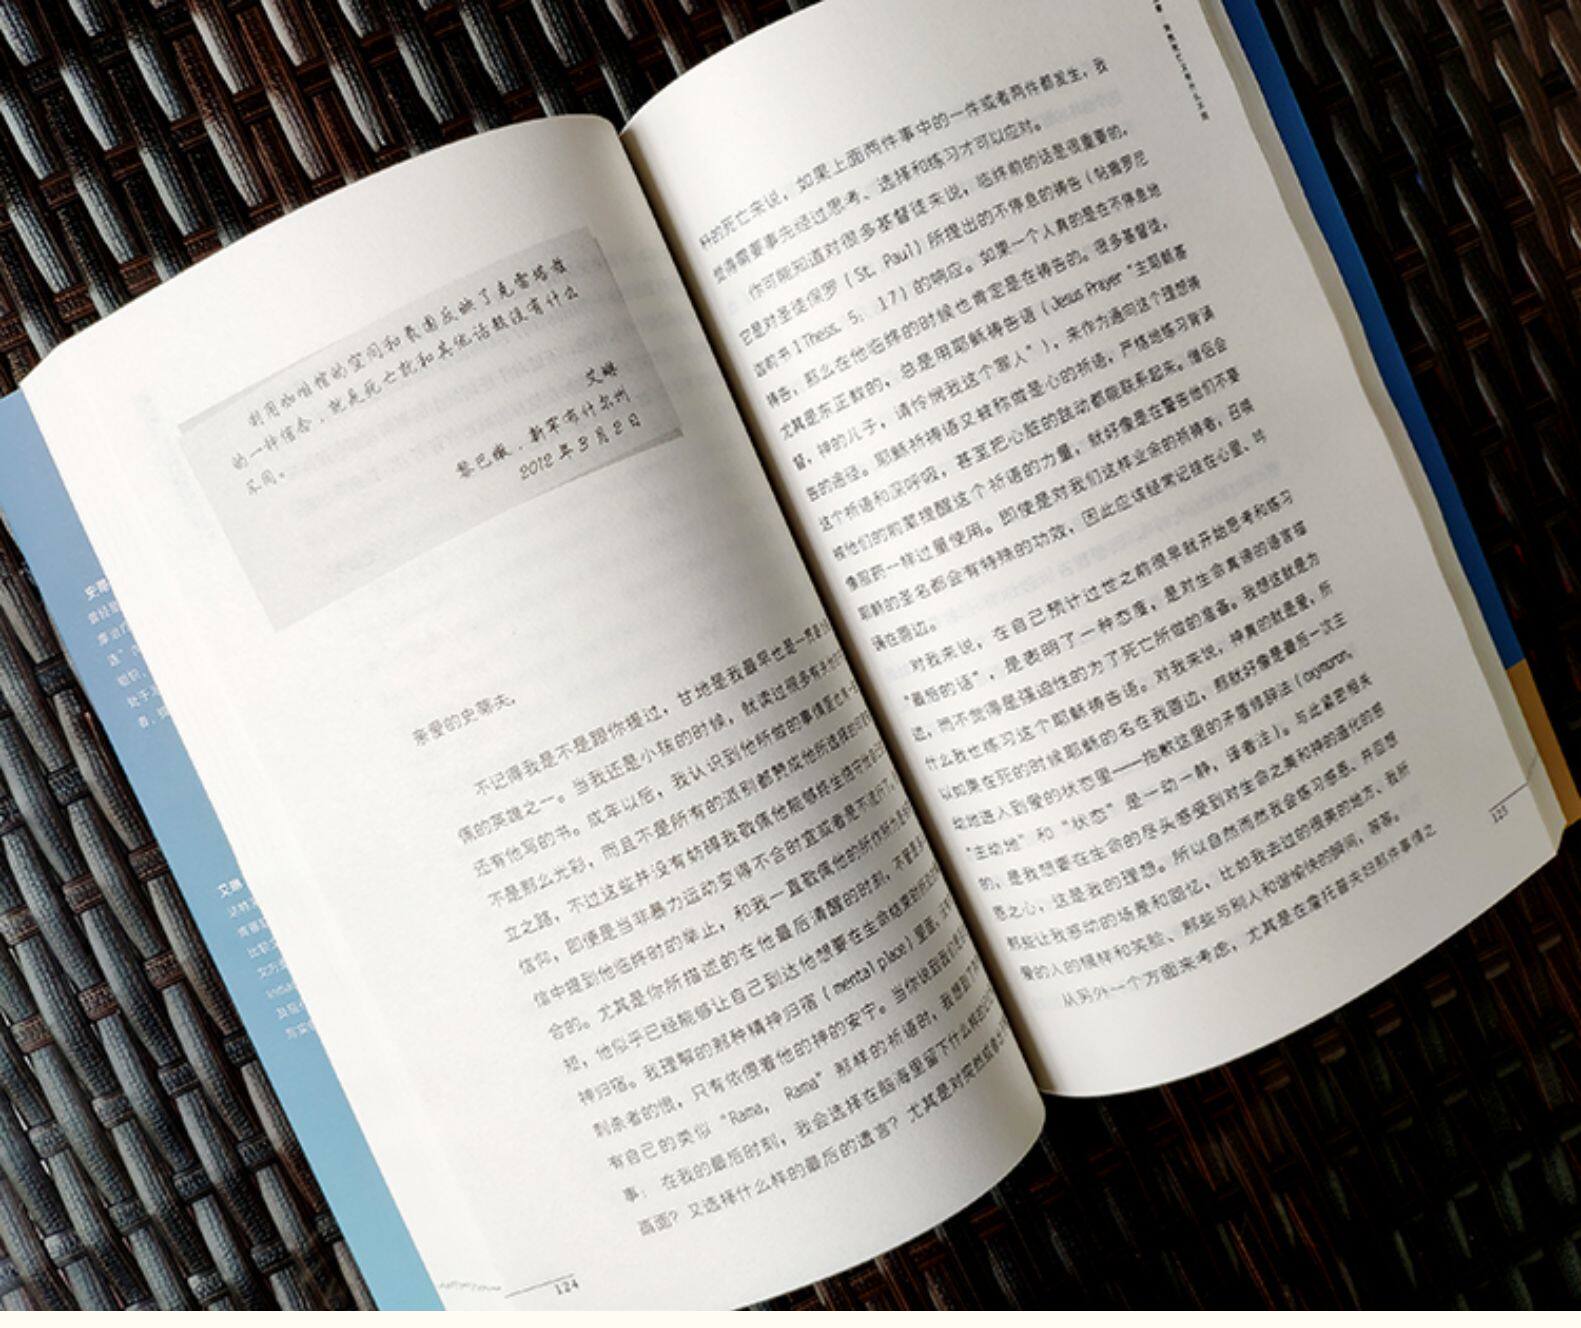 利用咖啡馆的空间和氛围反映了克雷塔兹
的一种信念，就是死亡就和其他话题没有什么
不同。
艾琳
黎巴嫩，新罕布什尔州
2012年3月2日
亲爱的史蒂夫，
不记得我是不是跟你提过，甘地是我最早也是一贯
佩的英雄之一。当我还是小孩的时候，就读过很多有
还有他写的书。成年以后，我认识到他所做的事情里也
不是那么光彩，而且不是所有的派别都赞成他所选择的
立之路，不过这些并没有妨碍我敬佩他能够终生
信仰，即便是当非暴力运动变得不合时宜或者是不流行
信中提到他临终时的举止，和我一直敬佩他的所作所
合的。尤其是你所描述的在他最后清醒的时刻，不管是
短，他似乎已经能够让自己到达他想要在生命结束时
神归宿。我理解的那种精神归宿（mental place）里面，
刺杀者的恨，只有依偎着他的神的安宁。当你说到我们
有自己的类似“Rama， Rama”那样的祈语时，我想到了
事：在我的最后时刻，我会选择在脑海里留下什么样的
画面？又选择什么样的最后的遗言？尤其是对突然或
124
种的死亡来说，如果上面两件事中的一件或者两件都发生，我
觉得需要事先经过思考、选择和练习才可以应对。
你可能知道对很多基督徒来说，临终前的话是很重要的，
它是对圣徒保罗（St. Paul）所提出的不停息的祷告（帖撒罗尼
迦前书 1 Thess. 5：17）的响应。如果一个人真的是在不停息地
祷告，那么在他临终的时候也肯定是在祷告的。很多基督徒，
尤其是东正教的，总是用耶稣祷告语（Jesus Prayer“主耶稣基
督，神的儿子，请怜悯我这个罪人”），来作为通向这个理想祷
告的途径。耶稣祈祷语又被称做是心的祈语，严格地练习背诵
这个祈语和深呼吸，甚至把心脏的跳动都能联系起来。僧侣会
被他们的前辈提醒这个祈语的力量，就好像是在警告他们不要
像服药一样过量使用。即使是对我们这样业余的祈祷者，召唤
耶稣的圣名都会有特殊的功效，因此应该经常记挂在心里、吟
诵在唇边。
对我来说，在自己预计过世之前很早就开始思考和练习
“最后的话”，是表明了一种态度，是对生命真谛的语言描
述，而不觉得是强迫性的为了死亡所做的准备。我想这就是为
什么我也练习这个耶稣祷告语。对我来说，神真的就是爱，所
以如果在死的时候耶稣的名在我唇边，那就好像是最后一次主
动地进入到爱的状态里——抱歉这里的矛盾修辞法（oxymoron，
“主动地”和“状态”是一动一静，译者注）。与此紧密相关
的，是我想要在生命的尽头感受到对生命之美和神的造化的感
恩之心，这是我的理想。所以自然而然我会练习感恩、并回想
那些让我感动的场景和回忆，比如我去过的很美的地方、我所
爱的人的模样和笑脸、那些与别人和谐愉快的瞬间，等等。
从另外一个方面来考虑，尤其是在詹托普夫妇那件事情之
125